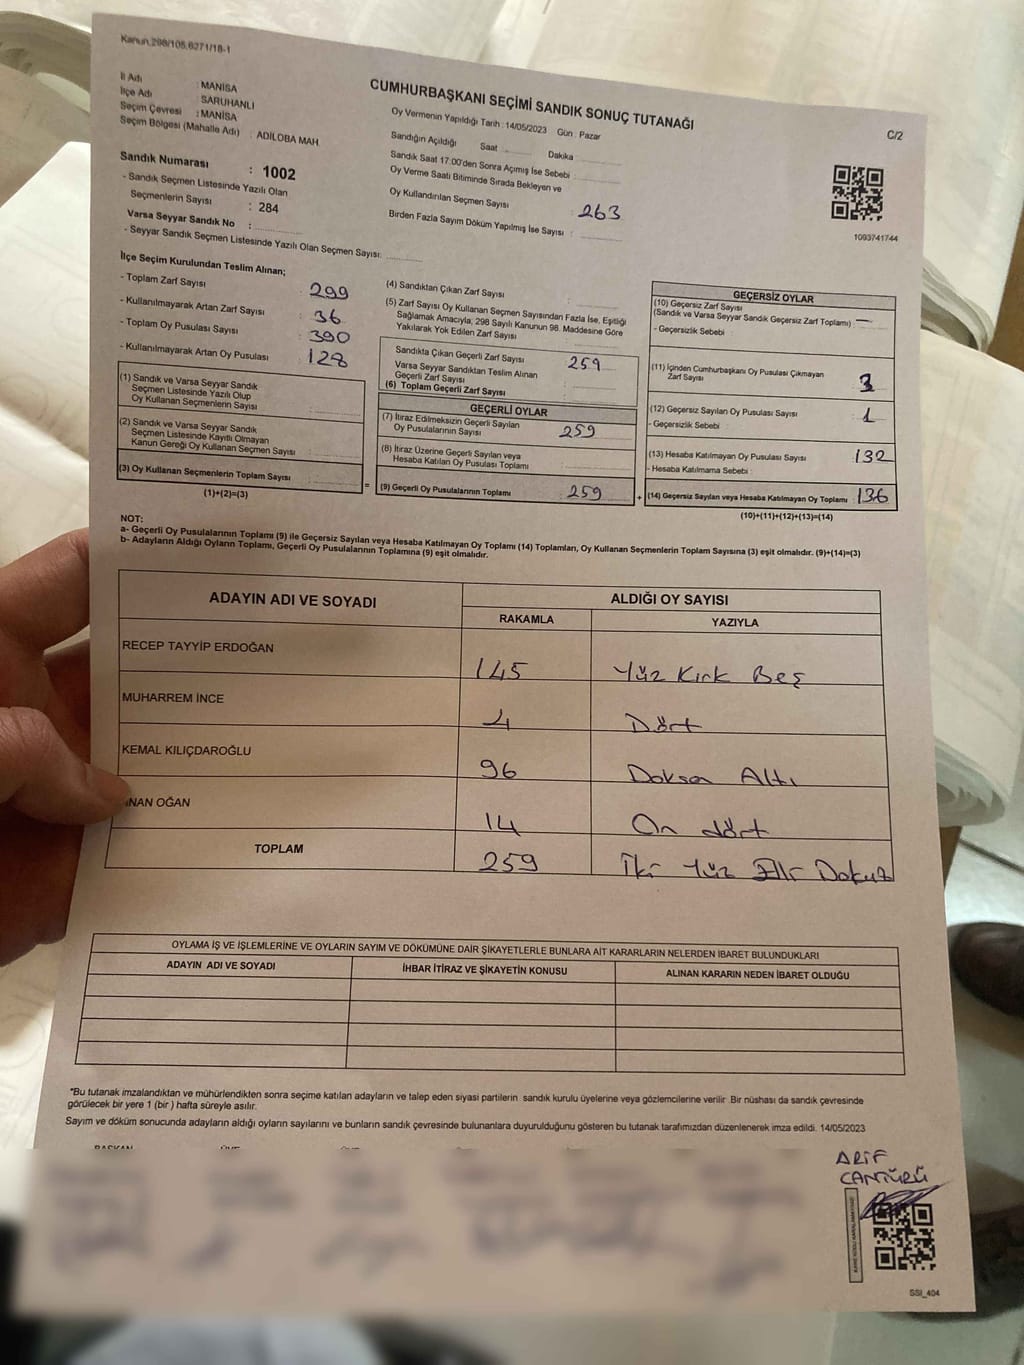 Kanun.298/105,6271/18-1
İl Adı : MANİSA
İlçe Adı : SARUHANLI
Seçim Çevresi : MANİSA
Seçim Bölgesi (Mahalle Adı) : ADİLOBA MAH.
Sandık Numarası : 1002
- Sandık Seçmen Listesinde Yazılı Olan
Seçmenlerin Sayısı : 284
Varsa Seyyar Sandık No :
- Seyyar Sandık Seçmen Listesinde Yazılı Olan Seçmen Sayısı:
CUMHURBAŞKANI SEÇİMİ SANDIK SONUÇ TUTANAĞI
C/2
Oy Vermenin Yapıldığı Tarih : 14/05/2023 Gün : Pazar
Sandığın Açıldığı Saat Dakika
Sandık Saat 17:00'den Sonra Açımış İse Sebebi :
Oy Verme Saati Bitiminde Sırada Bekleyen ve
Oy Kullandırılan Seçmen Sayısı : 263
Birden Fazla Sayım Döküm Yapılmış İse Sayısı :
1093741744
İlçe Seçim Kurulundan Teslim Alınan;
- Toplam Zarf Sayısı : 299
- Kullanılmayarak Artan Zarf Sayısı : 36
- Toplam Oy Pusulası Sayısı : 390
- Kullanılmayarak Artan Oy Pusulası : 128
(1) Sandık ve Varsa Seyyar Sandık
Seçmen Listesinde Yazılı Olup
Oy Kullanan Seçmenlerin Sayısı :
(2) Sandık ve Varsa Seyyar Sandık
Seçmen Listesinde Kayıtlı Olmayan
Kanun Gereği Oy Kullanan Seçmen Sayısı :
(3) Oy Kullanan Seçmenlerin Toplam Sayısı :
(1)+(2)=(3)
=
(4) Sandıktan Çıkan Zarf Sayısı :
(5) Zarf Sayısı Oy Kullanan Seçmen Sayısından Fazla İse, Eşitliği
Sağlamak Amacıyla; 298 Sayılı Kanunun 98. Maddesine Göre
Yakılarak Yok Edilen Zarf Sayısı :
Sandıkta Çıkan Geçerli Zarf Sayısı : 259
Varsa Seyyar Sandıktan Teslim Alınan
Geçerli Zarf Sayısı :
(6) Toplam Geçerli Zarf Sayısı :
GEÇERLİ OYLAR
(7) İtiraz Edilmeksizin Geçerli Sayılan
Oy Pusulalarının Sayısı : 259
(8) İtiraz Üzerine Geçerli Sayılan veya
Hesaba Katılan Oy Pusulası Toplamı :
(9) Geçerli Oy Pusulalarının Toplamı : 259
+
GEÇERSİZ OYLAR
(10) Geçersiz Zarf Sayısı
(Sandık ve Varsa Seyyar Sandık Geçersiz Zarf Toplamı) : —
- Geçersizlik Sebebi :
(11) İçinden Cumhurbaşkanı Oy Pusulası Çıkmayan
Zarf Sayısı : 3
(12) Geçersiz Sayılan Oy Pusulası Sayısı : 1
- Geçersizlik Sebebi :
(13) Hesaba Katılmayan Oy Pusulası Sayısı : 132
- Hesaba Katılmama Sebebi :
(14) Geçersiz Sayılan veya Hesaba Katılmayan Oy Toplamı : 136
(10)+(11)+(12)+(13)=(14)
NOT:
a- Geçerli Oy Pusulalarının Toplamı (9) ile Geçersiz Sayılan veya Hesaba Katılmayan Oy Toplamı (14) Toplamları, Oy Kullanan Seçmenlerin Toplam Sayısına (3) eşit olmalıdır. (9)+(14)=(3)
b- Adayların Aldığı Oyların Toplamı, Geçerli Oy Pusulalarının Toplamına (9) eşit olmalıdır.
ADAYIN ADI VE SOYADI ALDIĞI OY SAYISI
RAKAMLA YAZIYLA
RECEP TAYYİP ERDOĞAN 145 Yüz Kırk Beş
MUHARREM İNCE 4 Dört
KEMAL KILIÇDAROĞLU 96 Doksan Altı
İNAN OĞAN 14 On dört
TOPLAM 259 İki Yüz Elli Dokuz
OYLAMA İŞ VE İŞLEMLERİNE VE OYLARIN SAYIM VE DÖKÜMÜNE DAİR ŞİKAYETLERLE BUNLARA AİT KARARLARIN NELERDEN İBARET BULUNDUKLARI
ADAYIN ADI VE SOYADI İHBAR İTİRAZ VE ŞİKAYETİN KONUSU ALINAN KARARIN NEDEN İBARET OLDUĞU
*Bu tutanak imzalandıktan ve mühürlendikten sonra seçime katılan adayların ve talep eden siyasi partilerin sandık kurulu üyelerine veya gözlemcilerine verilir. Bir nüshası da sandık çevresinde
görülecek bir yere 1 (bir) hafta süreyle asılır.
Sayım ve döküm sonucunda adayların aldığı oyların sayılarını ve bunların sandık çevresinde bulunanlara duyurulduğunu gösteren bu tutanak tarafımızdan düzenlenerek imza edildi. 14/05/2023
BAŞKAN ÜYE ÜYE
ARİF
CANTÜRÜ
SSI_404